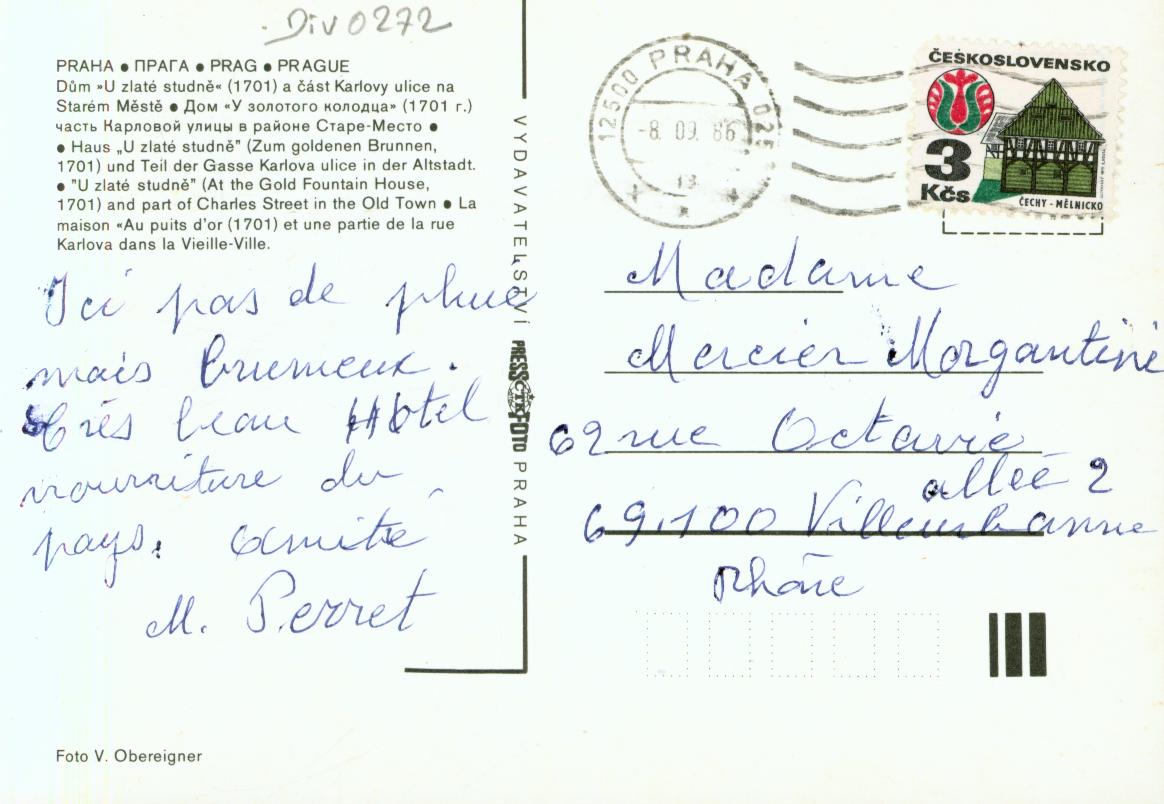 Div 0272
PRAHA ● ПРАГА ● PRAG ● PRAGUE
Dům »U zlaté studně« (1701) a část Karlovy ulice na
Starém Městě ● Дом «У золотого колодца» (1701 г.)
часть Карловой улицы в районе Старе-Место ●
● Haus „U zlaté studně" (Zum goldenen Brunnen,
1701) und Teil der Gasse Karlova ulice in der Altstadt.
● "U zlaté studně" (At the Gold Fountain House,
1701) and part of Charles Street in the Old Town ● La
maison «Au puits d'or (1701) et une partie de la rue
Karlova dans la Vieille-Ville.
Ici pas de pluie
mais brumeux.
Très beau Hôtel
nourriture du
pays. Amitié
M. Perret
Foto V. Obereigner
VYDAVATELSTVÍ PRESSFOTO PRAHA
ČTK
12500 PRAHA 025
-8. 09. 86
13
ČESKOSLOVENSKO
3
Kčs
ČECHY - MĚLNICKO
Madame
Mercier Morgantini
62 rue Octavie
allée 2
69.100 Villeurbanne
Rhône